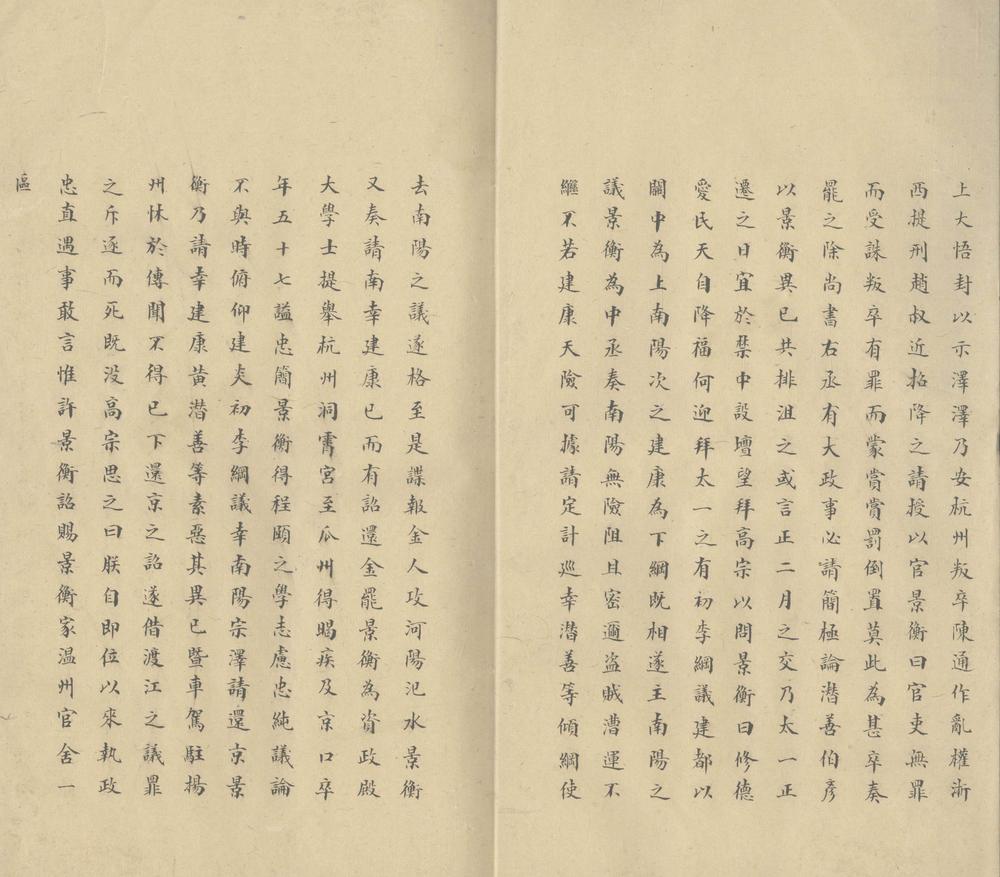 上大悟封以示澤澤乃安杭州叛卒陳通作亂權浙
西提刑趙叔近招降之請授以官景衡曰官吏無罪
而受誅叛卒有罪而蒙賞賞罰倒置莫此為甚卒奏
罷之除尚書右丞有大政事必請簡極論潛善伯彥
以景衡異已共排沮之或言正二月之交乃太一正
遷之日宜於禁中設壇望拜高宗以問景衡曰修德
愛民天自降福何迎拜太一之有初李綱議建都以
關中為上南陽次之建康為下綱既相遂主南陽之
議景衡為中丞奏南陽無險阻且密邇盜賊漕運不
繼不若建康天險可據請定計巡幸潛善等傾綱使
去南陽之議遂格至是諜報金人攻河陽汜水景衡
又奏請南幸建康已而有詔還金罷景衡為資政殿
大學士提舉杭州洞霄宮至瓜州得暍疾及京口卒
年五十七諡忠簡景衡得程頤之學志慮忠純議論
不與時俯仰建炎初李綱議幸南陽宗澤請還京景
衡乃請幸建康黃潛善等素惡其異已暨車駕駐揚
州怵於傳聞不得已下還京之詔遂借渡江之議罪
之斥逐而死既没高宗思之曰朕自即位以來執政
忠直遇事敢言惟許景衡詔賜景衡家温州官舍一
區